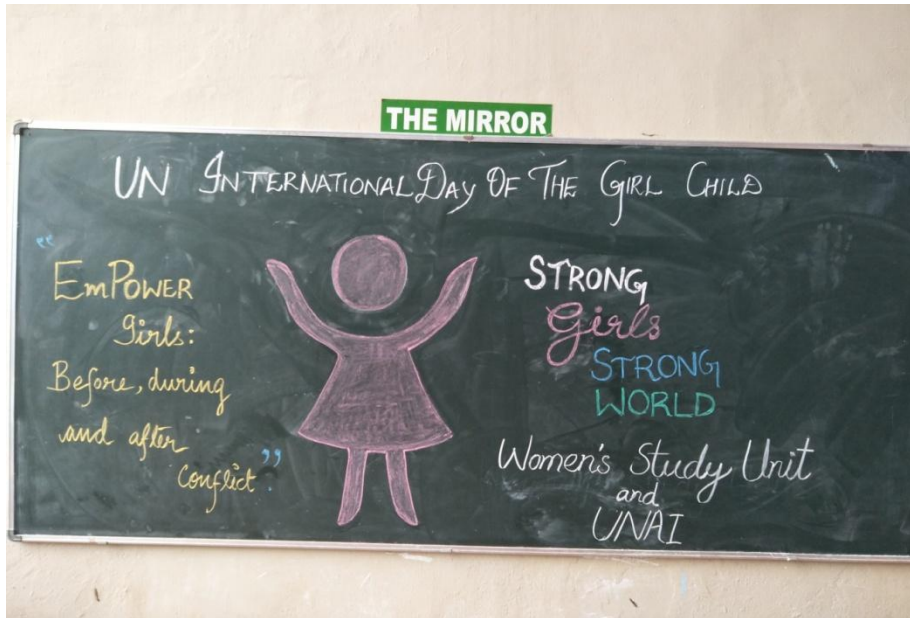 THE MIRROR
UN INTERNATIONAL DAY OF THE GIRL CHILD
"EmPOWER
Girls:
Before, during
and after
conflict."
STRONG
Girls
STRONG
WORLD
Women's Study Unit
and
UNAI